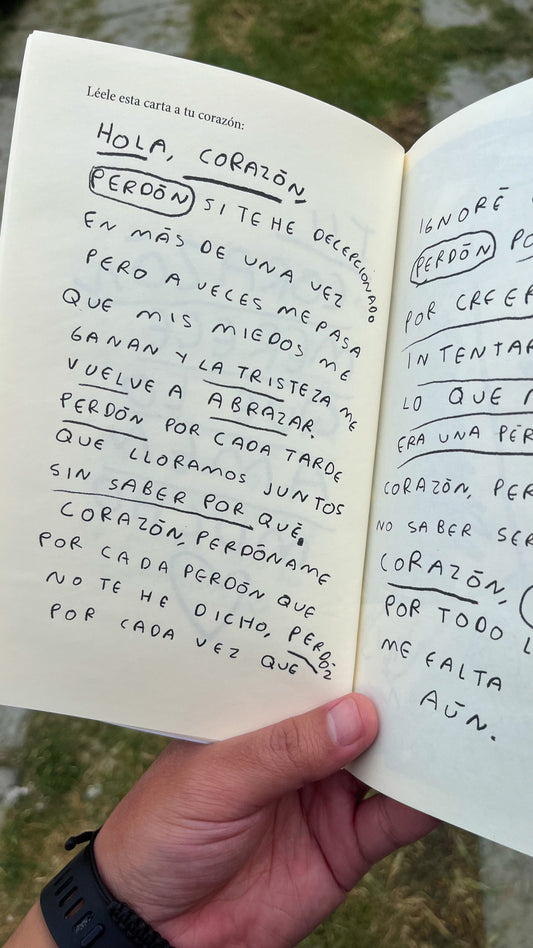 Léele esta carta a tu corazón:
HOLA, CORAZÓN,
PERDÓN SI TE HE DECEPCIONADO
EN MÁS DE UNA VEZ
PERO A VECES ME PASA
QUE MIS MIEDOS ME
GANAN Y LA TRISTEZA ME
VUELVE A ABRAZAR.
PERDÓN POR CADA TARDE
QUE LLORAMOS JUNTOS
SIN SABER POR QUÉ.
CORAZÓN, PERDÓNAME
POR CADA PERDÓN QUE
NO TE HE DICHO, PERDÓN
POR CADA VEZ QUE
IGNORÉ
PERDÓN
POR CREER
INTENTAR
LO QUE
ERA UNA
CORAZÓN,
NO SABER
CORAZÓN,
POR TODO
ME FALTA
AÚN.